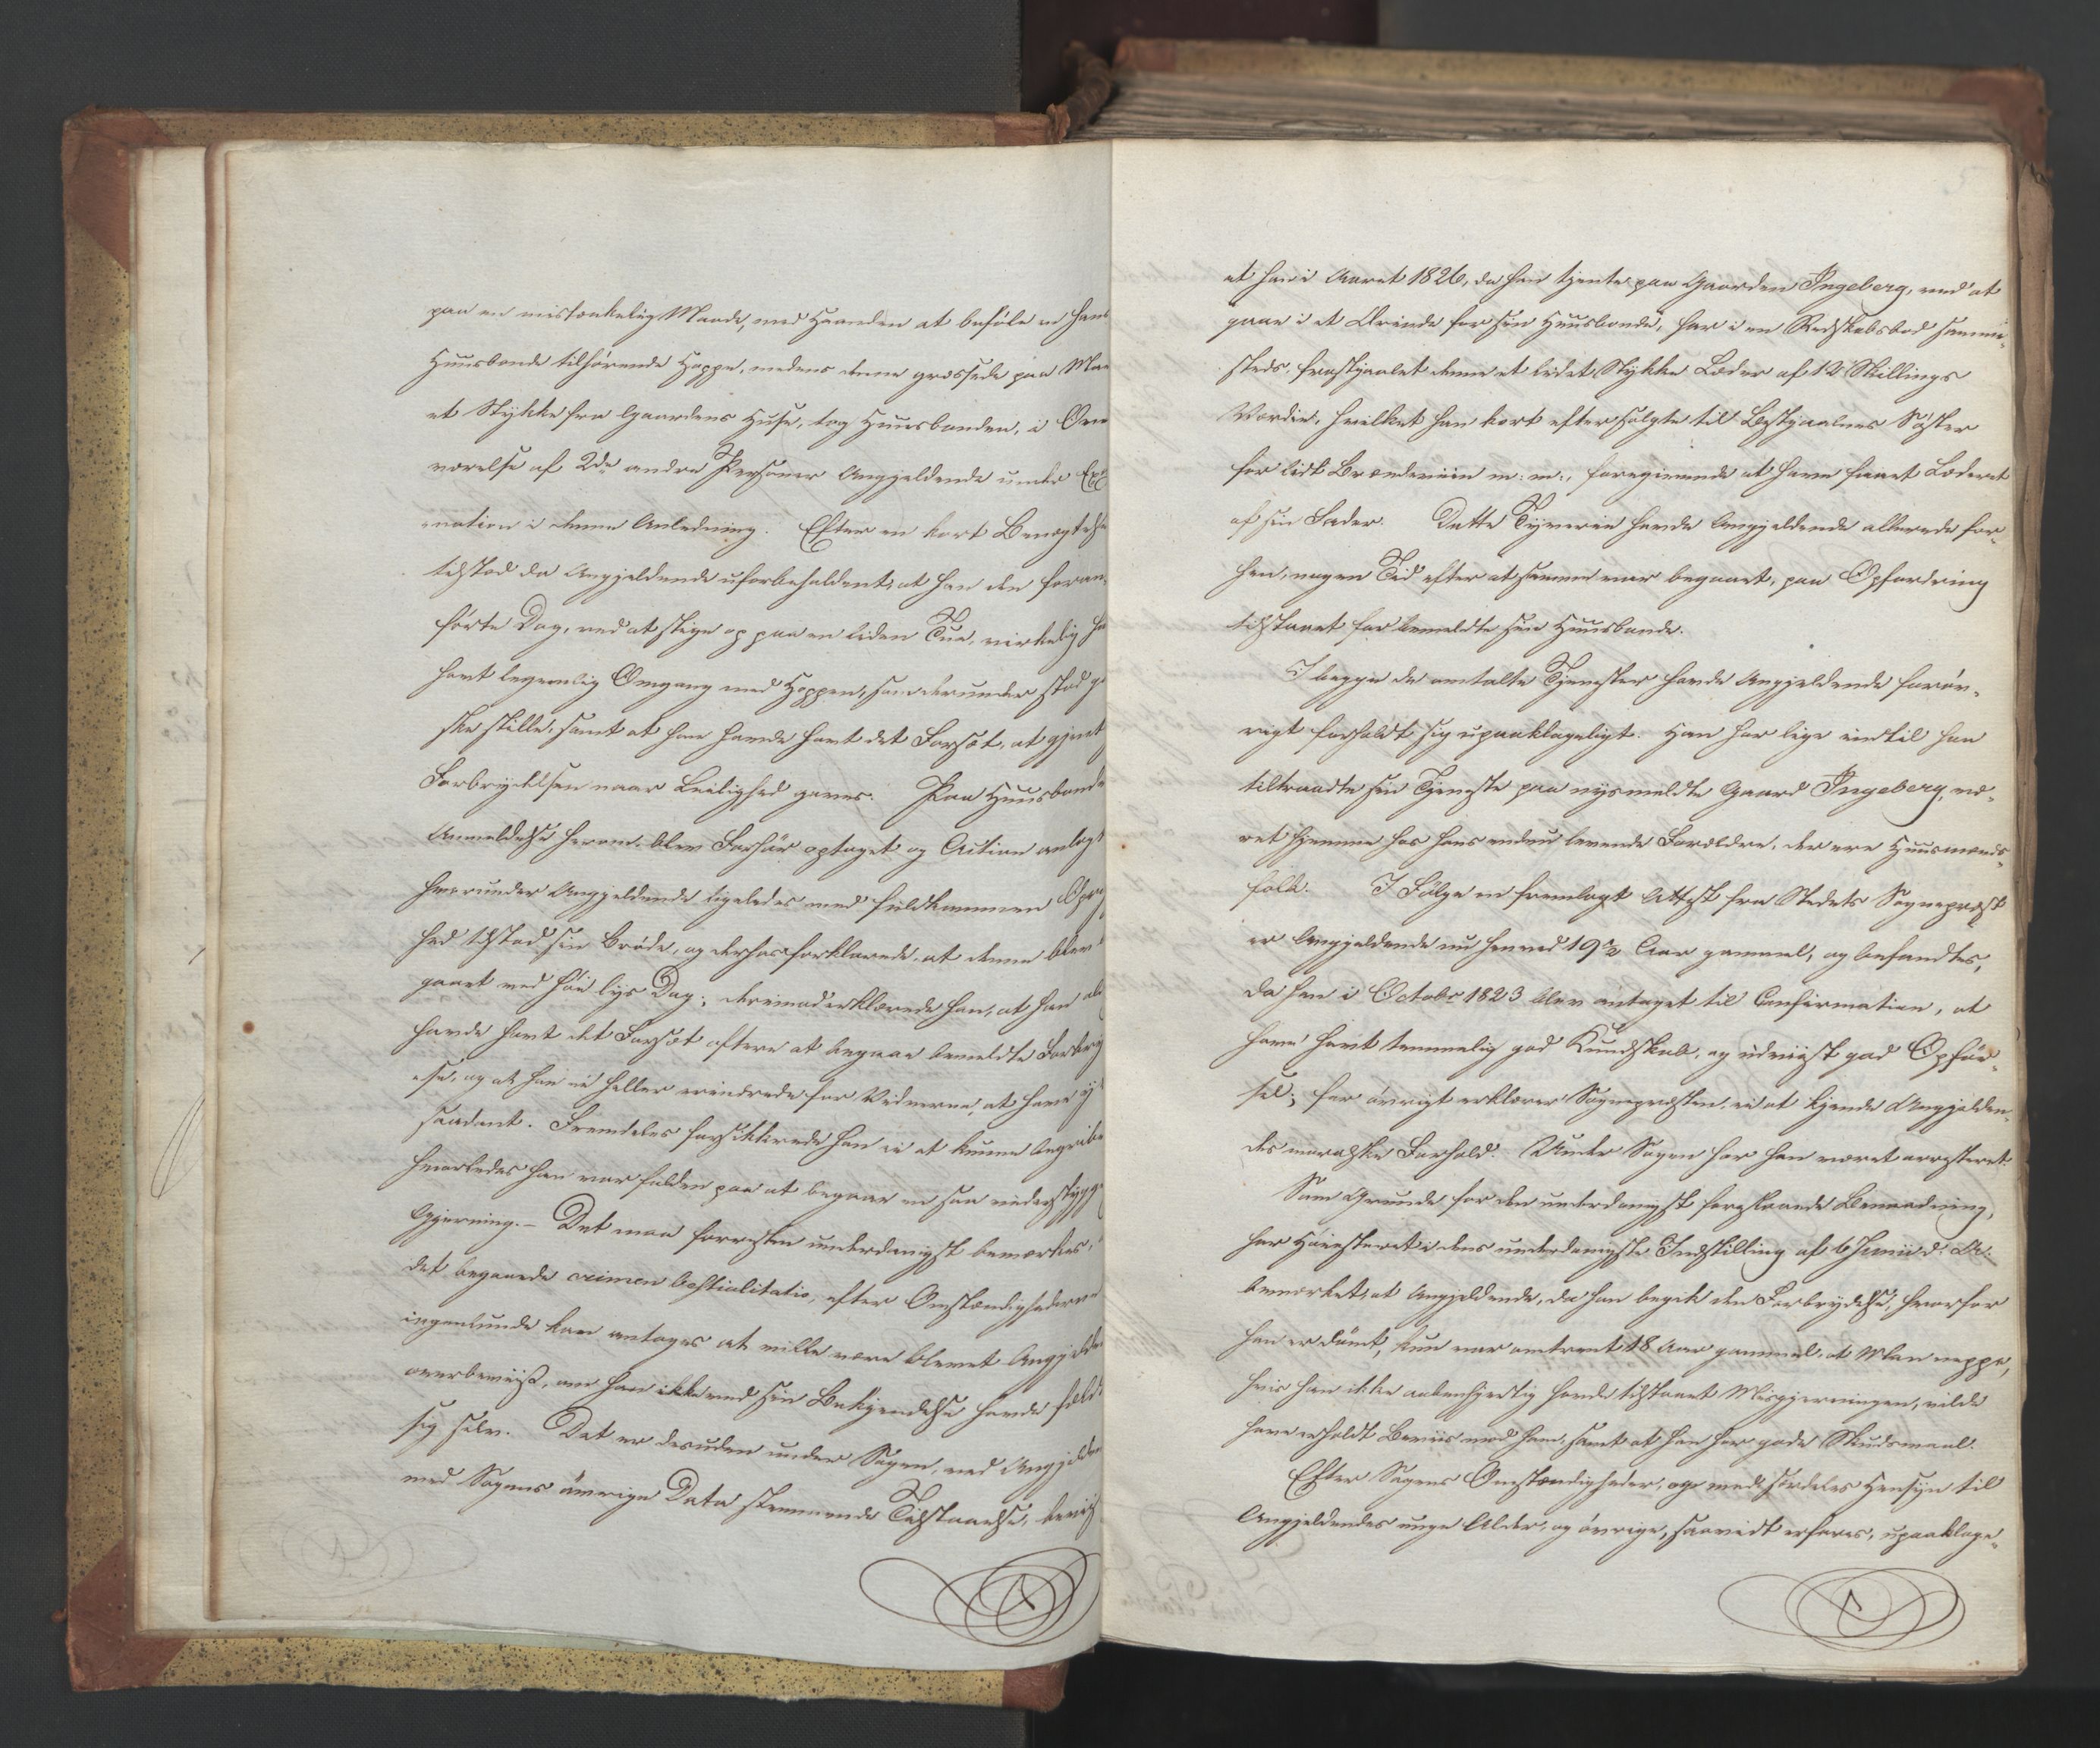 paa en mistænkelig Maade, med Haanden at beføle en hans
Huusbonde tilhørende Hoppe, medens denne græssede paa Mar
et Stykke fra Gaardens Huse, tog Huusbonden, i Over
værelse af 2de andre Personer Angjeldende under Exa
-nation i denne Anledning. Efter en kort Benægtelse
tilstod da Angjeldende uforbeholdent, at han den foran-
førte Dag, ved at stige op paa en liden Tue, virkelig ha
havt legemlig Omgang med Hoppen, som derunder stod ga
ske stille, samt at han havde havt det Forsæt, at gjent
Forbrydelsen naar Leilighed gaves. Paa Huusbonde
Anmeldelse herom, blev Forhør optaget og Action anlagt
hvorunder Angjeldende ligeledes med fuldkommen Opri
hed tilstod sin Brøde, og derhos forklarede, at denne blev
gaaet ved høi lys Dag; derimod erklærede han, at han al
havde havt det Forsæt oftere at begaae bemeldte Forbry
-se, og at han ei heller erindrede for Vidnerne, at have y
saadant. Fremdeles forsikkrede han ei at kunne begribe
hvorledes han var falden paa at begaae en saa nederstygge
Gjerning.- Det maa forresten underdanigst bemærkes,
det begaaede crimen bestialitatis, efter Omstændighederne
ingenlunde kan antages at ville være blevet Angjelde
overbeviist, om han ikke ved sin Bekjendelse havde fæld
sig selv. Det er desuden under Sagen, ved Angjelden
med Sagens øvrige Data stemmende Tilstaaelse, beviis
at han i Aaret 1826, da han tjente paa Gaarden Ingeberg, ved at
gaae i et Ærinde for sin Huusbonde, har i en Redskabsbod samme-
steds frastjaalet denne et lidet Stykke Læder af 12 Skillings
Værdie, hvilket han kort efter solgte til Bestjaalnes Søster
for lidt Brændeviin m: m:, foregivende at have faaet Læderet
af sin Fader. Dette Tyverie havde Angjeldende allerede for-
hen, nogen Tid efter at samme var begaaet, paa Opfordring
tilstaaet for bemeldte sin Huusbonde.
I begge de omtalte Tjenester havde Angjeldende forøv-
rigt forholdt sig upaaklageligt. Han har lige indtil han
tiltraadte sin Tjeneste paa nysmeldte Gaard Ingeberg, væ-
ret hjemme hos hans endnu levende Forældre, der ere Huusmands-
folk. I Følge en fremlagt Attest fra Stedets Sognepræst
er Angjeldende nu henved 19½ Aar gammel, og befandtes,
da han i Octobr 1823 blev antaget til Confirmation, at
have havt temmelig god Kundskab, og udviist god Opfør-
sel; for øvrigt erklærer Sognepræsten, ei at kjende Angjelden-
des moralske Forhold. Under Sagen har han været arresteret.
Som Grunde for den underdanigst foreslaaede Benaadning,
har Høiesteret i dens underdanigste Indstilling af 6 Junii d: A:
bemærket, at Angjeldende, da han begik den Forbrydelse, hvorfor
han er dømt, kun var omtrent 18 Aar gammel, at Man neppe,
hvis han ikke aabenhjertig havde tilstaaet Misgjerningen, vilde
have erholdt Beviis mod ham, samt at han har gode Skudsmaal.
Efter Sagens Omstændigheder, og med særdeles Hensyn til
Angjeldendes unge Alder, og øvrige, saavidt erfares, upaaklage-